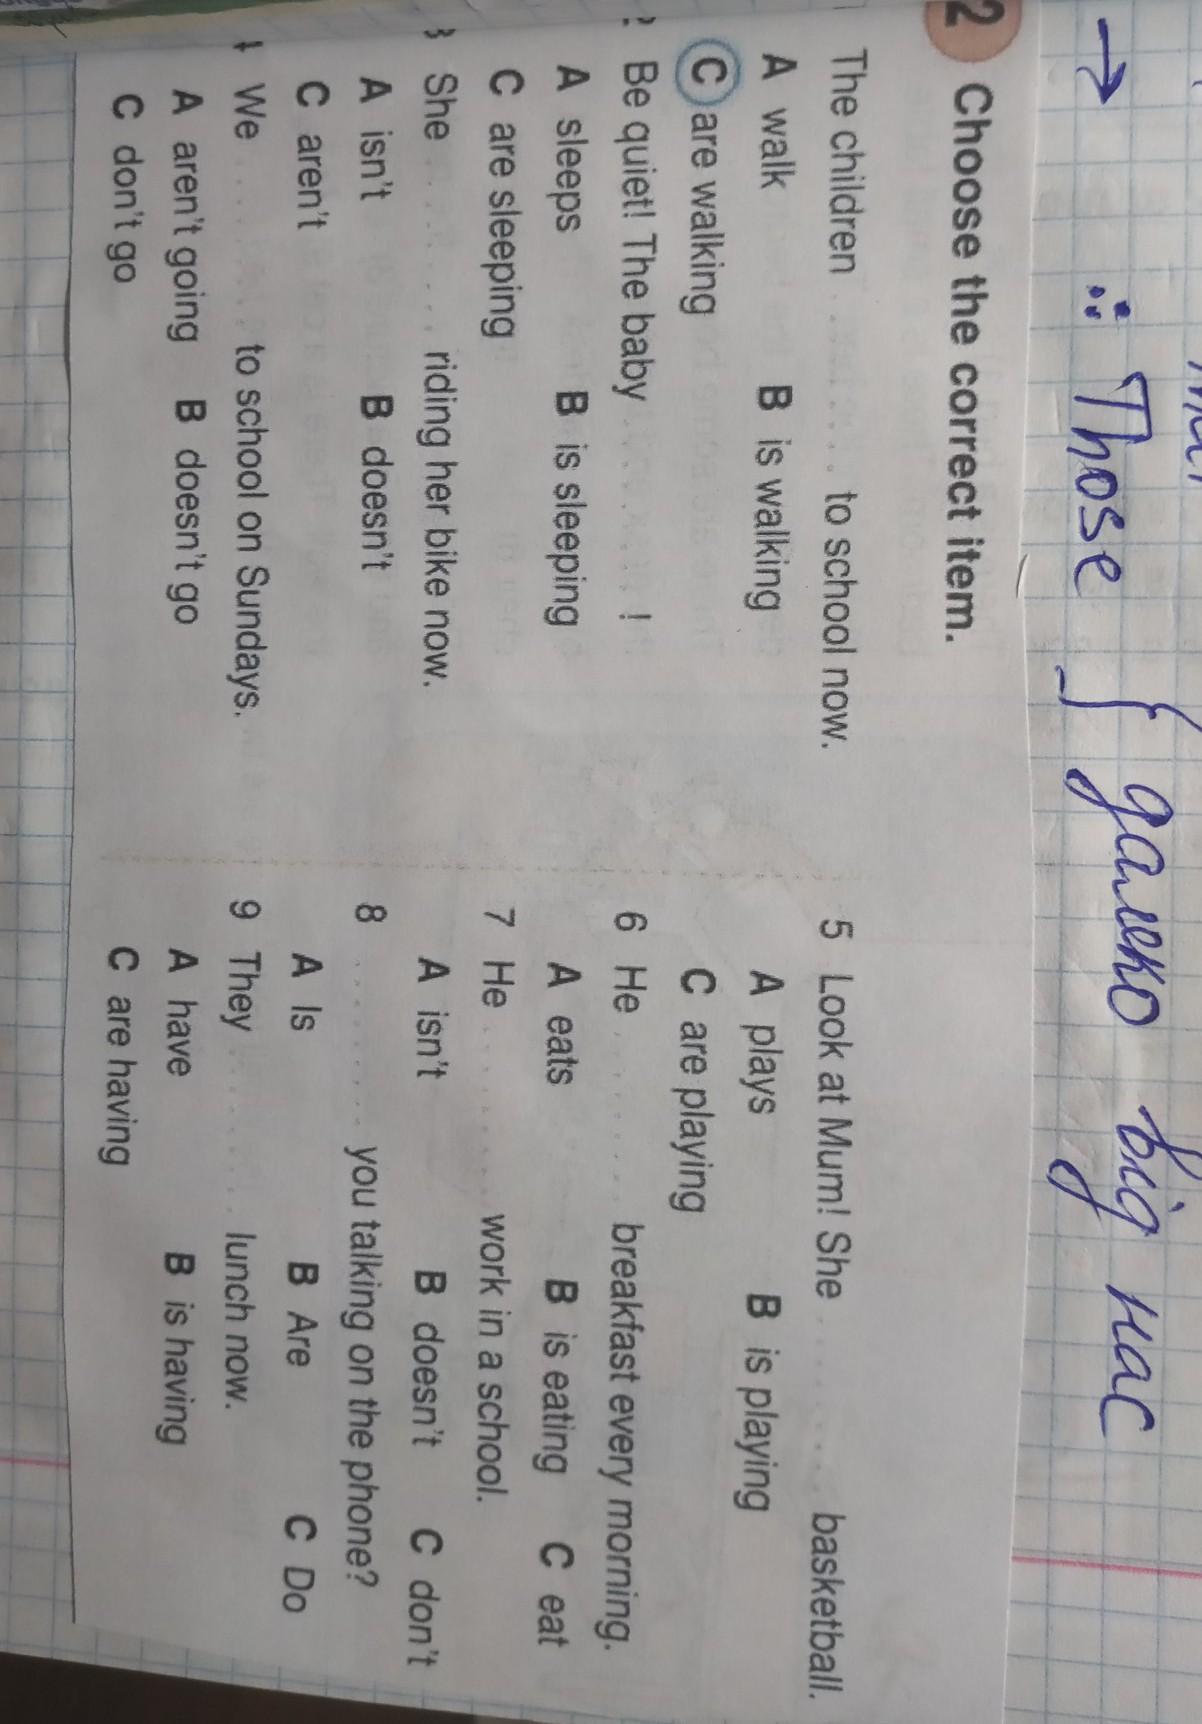 → ∴ Those { далеко від нас
2 Choose the correct item.
The children ........ to school now.
A walk B is walking
C are walking
2 Be quiet! The baby ........ !
A sleeps B is sleeping
C are sleeping
3 She ........ riding her bike now.
A isn't B doesn't
C aren't
4 We ........ to school on Sundays.
A aren't going B doesn't go
C don't go
5 Look at Mum! She ........ basketball.
A plays B is playing
C are playing
6 He ........ breakfast every morning.
A eats B is eating C eat
7 He ........ work in a school.
A isn't B doesn't C don't
8 ........ you talking on the phone?
A Is B Are C Do
9 They ........ lunch now.
A have B is having
C are having